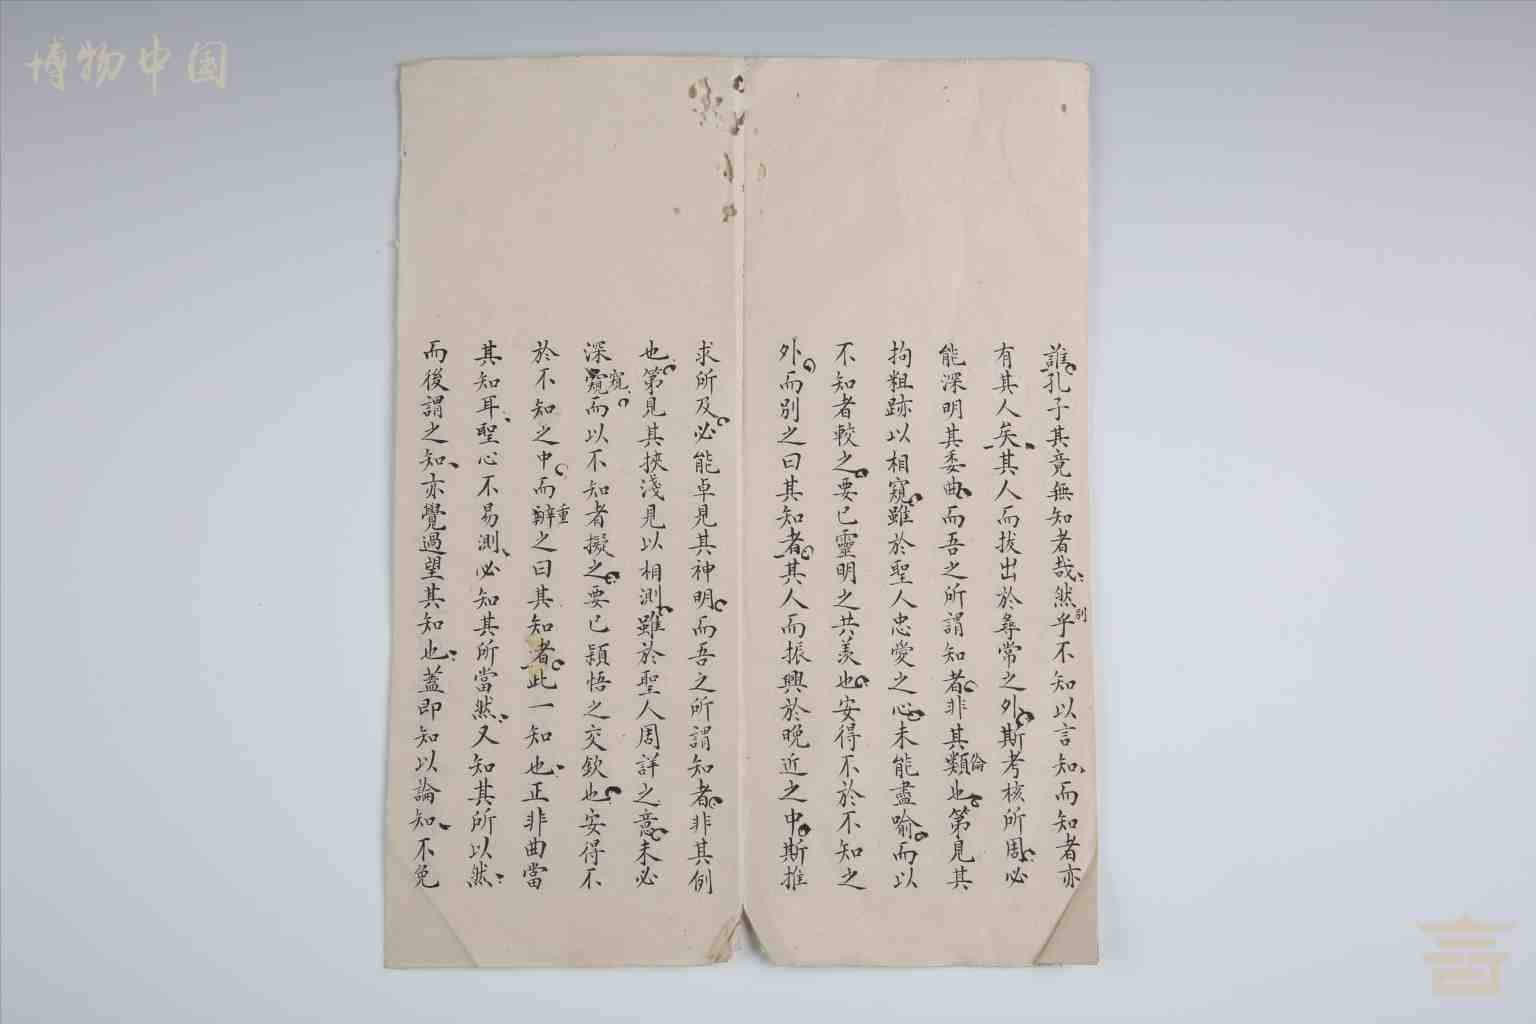 博物中国
誰孔子其竟無知者哉然乎不知以言知而知者亦
別
有其人矣其人而拔出於尋常之外斯考核所周必
能深明其委曲而吾之所謂知者非其類也第見其
倫
拘粗跡以相窺雖於聖人忠愛之心未能盡喻而以
不知者較之要已靈明之共羨也安得不於不知之
外而別之曰其知者其人而振興於晚近之中斯推
求所及必能卓見其神明而吾之所謂知者非其例
也第見其挾淺見以相測雖於聖人周詳之意未必
深窺而以不知者擬之要已穎悟之交欽也安得不
窺
於不知之中而辨之曰其知者此一知也正非曲當
重
其知耳聖心不易測必知其所當然又知其所以然
而後謂之知亦覺過望其知也蓋即知以論知不免